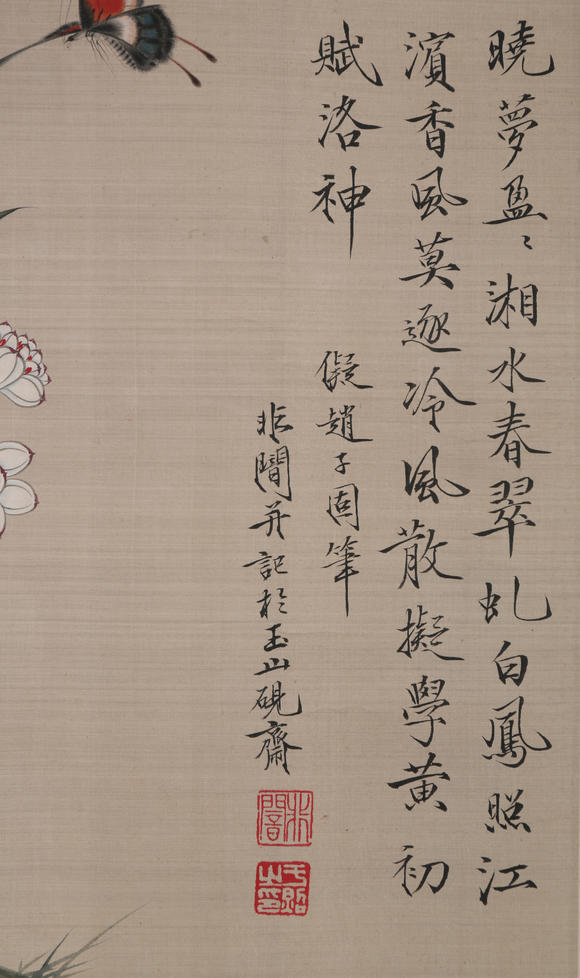 曉夢盈〻湘水春翠虬白鳳照江
濱香風莫逐冷風散擬學黃初
賦洛神
儗趙子固筆
非闇并記於玉山硯齋
非闇
于照之印